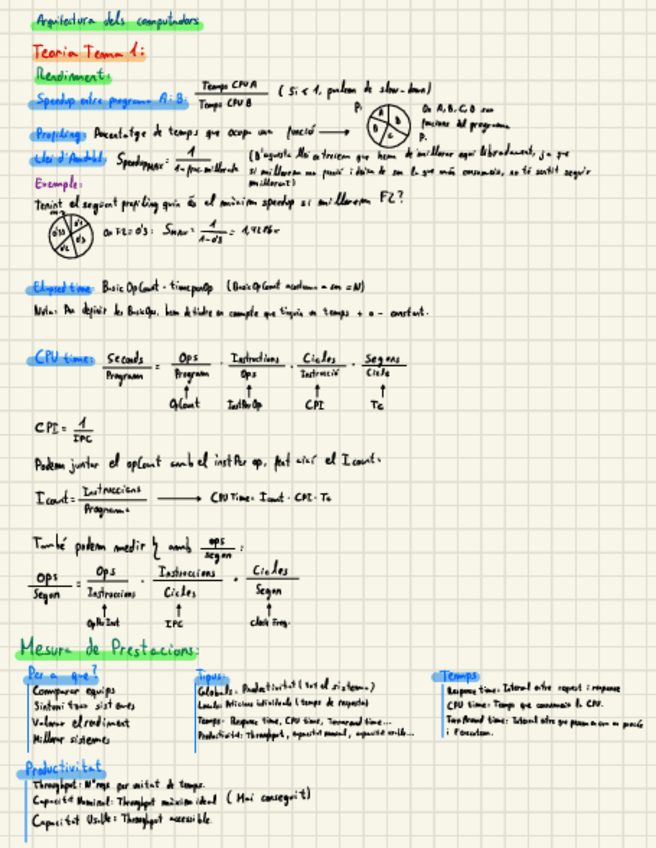 Arquitectura dels computadors
Teoria Tema 1:
Rendiment:
Speedup entre programa A i B: Temps CPU A / Temps CPU B (Si < 1, parlem de slow-down)
Profiling: Percentatge de temps que ocupa una funció → P: A B C D On A, B, C, D són funcions del programa P.
Llei d'Amdahl: Speedup MAX = 1 / 1 - frac. millorada (D'aquesta llei extreiem que hem de millorar equilibradament, ja que
si millorem una funció i deixa de ser la que més consumeix, no té sentit seguir
millorant)
Exemple:
Tenint el següent profiling quin és el màxim speedup si millorem F2?
On F2 = 0'3: Smax = 1 / 1-0'3 =
Elapsed time: BasicOpCount · timeperOp (BasicOpCount acostuma a ser = N)
Nota: Per definir les BasicOps, hem de tindre en compte que tinguin un temps + o - constant.
CPU time: Seconds / Programa = Ops / Programa · Instructions / Ops · Cicles / Instrucció · Segons / Cicle
OpCount InstPerOp CPI Tc
CPI = 1 / IPC
Podem juntar el opCount amb el instPer op, fent així el Icount.
Icount = Instruccions / Programa → CPUTime = Icount · CPI · Tc
També podem medir amb ops / segon :
Ops / Segon = Ops / Instruccions · Instruccions / Cicles · Cicles / Segon
OpPerInst IPC Clock Freq.
Mesura de Prestacions:
Per a que?
Comparar equips
Sintonitzar sistemes
Valorar el rendiment
Millorar sistemes
Tipus:
Globals: Productivitat (tot el sistema)
Locals: Peticions individuals (temps de resposta)
Temps: Response time, CPU time, Turnaround time...
Productivitat: Throughput, capacitat nominal, capacitat usable...
Temps
Response time: Interval entre request i response
CPU time: Temps que consumeix la CPU.
Turn Around time: Interval entre que un procés
i l'executem.
Productivitat
Throughput: per unitat de temps.
Capacitat Nominal: Throughput màxim ideal (Mai conseguit)
Capacitat Usable: Throughput accessible.